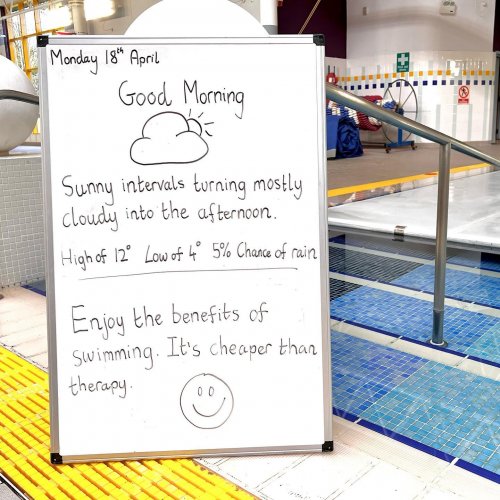 Monday 18th April
Good Morning
Sunny intervals turning mostly
cloudy into the afternoon.
High of 12° Low of 4° 5% Chance of rain
Enjoy the benefits of
swimming. It's cheaper than
therapy.